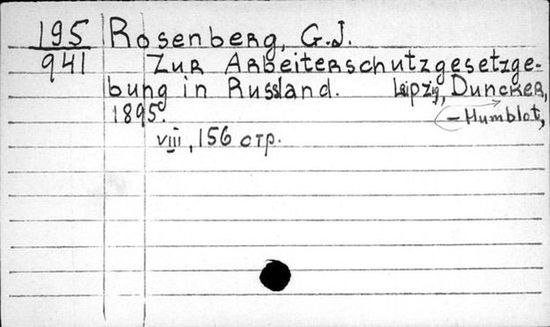 195 Rosenberg, G.J.
941 Zur Arbeiterschutzgesetzge-
bung in Russland. Leipzig, Duncker,
1895. - Humblot,
viii, 156 стр.